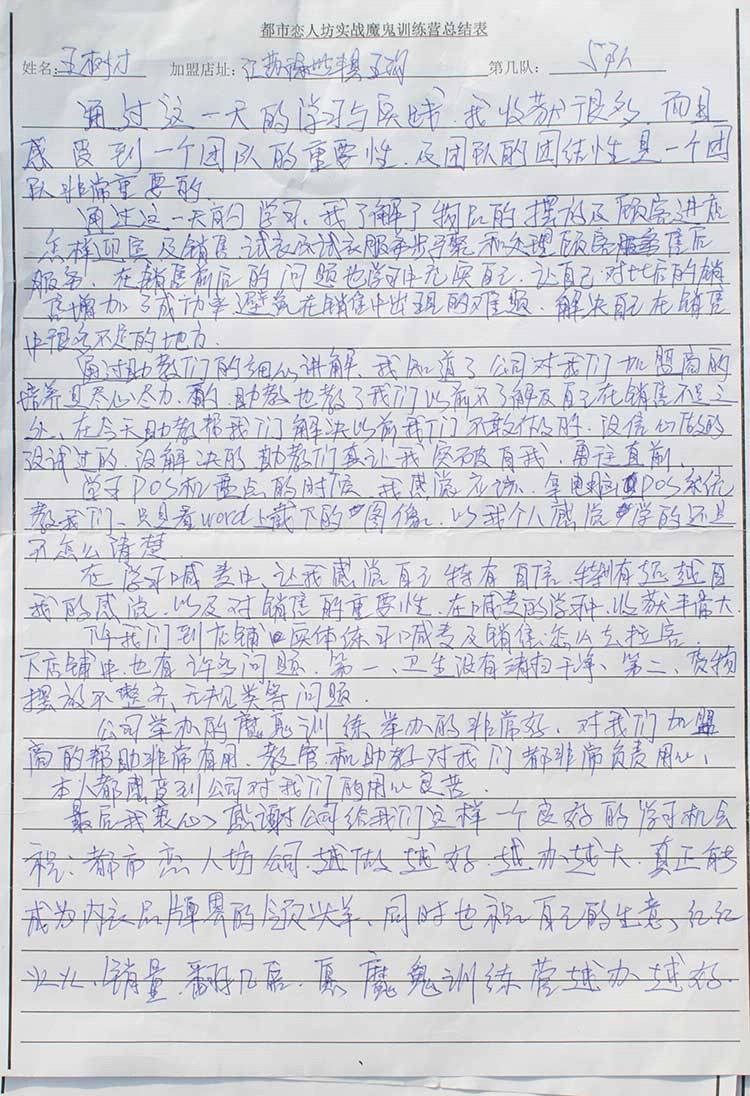 都市恋人坊实战魔鬼训练营总结表
姓名: 王树才 加盟店址: 江苏 第几队: 5队
通过这一天的学习与实践.我收获很多.而且
感受到一个团队的重要性.及团队的团结性是一个团
队非常重要的.
通过这一天的学习、我了解了物品的摆放及顾客进店
怎样迎宾及销售.试衣 试衣服 和处理顾客服务售后
服务.在销售前后的问题也学习中充实自己.让自己对此后的销
售增加了成功率避免在销售中出现的难题.解决自己在销售
中很多不足的地方.
通过助教们的细心讲解.我知道了公司对我们加盟商的
培养是尽心尽力.的.助教也教了我们以前不了解及自己在销售不足之
处、在今天助教帮我们解决以前我们不敢做的.没信心做的
没试过的.没解决的.助教们真让我突破自我.勇往直前.
学习POS机盘点的时候.我感觉应该.拿电脑 POS系统
教我们、只是看word上截下的图像.以我个人感觉学的还是
不怎么清楚.
在学习喊麦中、让我感觉自己特有自信.特别有超越自
我的感觉.以及对销售的重要性.在喊麦的学科.收获丰倍大.
下午我们到店铺实体练习喊麦及销售.怎么去拉客.
下店铺中.也有许多问题.第一、卫生没有清扫干净、第二、货物
摆放不整齐、无规类等问题.
公司举办的魔鬼训练举办的非常好.对我们加盟
商的帮助非常有用.教官和助教对我们都非常负责用心、
本人都感受到公司对我们的用心良苦.
最后我衷心 感谢公司给我们这样一个良好的学习机会
祝:都市恋人坊公司.越做越好.越办越大.真正能够
成为内衣品牌界的领头羊.同时也祝自己的生意、红红
火火、销量.翻好几倍.愿魔鬼训练营越办越好.